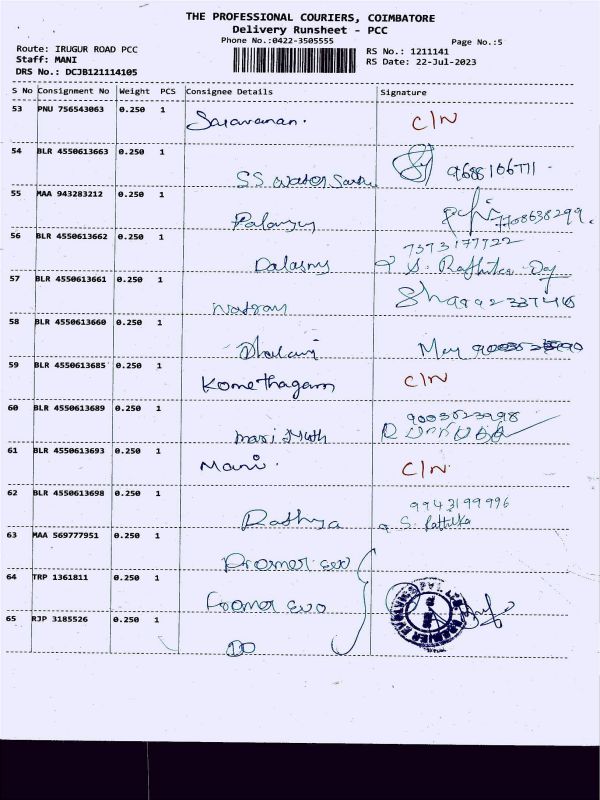 THE PROFESSIONAL COURIERS, COIMBATORE
Delivery Runsheet - PCC
Phone No.:0422-3505555
Page No.:5
Route: IRUGUR ROAD PCC
Staff: MANI
DRS No.: DCJB121114105
RS No.: 1211141
RS Date: 22-Jul-2023
S No Consignment No Weight PCS Consignee Details Signature
53 PNU 756543063 0.250 1 Saravanan. C/N
54 BLR 4550613663 0.250 1 SS
55 MAA 943283212 0.250 1 7708638299.
56 BLR 4550613662 0.250 1 7373177722
57 BLR 4550613661 0.250 1
58 BLR 4550613660 0.250 1
59 BLR 4550613685 0.250 1 Komethagam C/N
60 BLR 4550613689 0.250 1 9003623998
61 BLR 4550613693 0.250 1 Mani. C/N
62 BLR 4550613698 0.250 1 Rathya 9943199996
S. Rathika
63 MAA 569777951 0.250 1
64 TRP 1361811 0.250 1
65 RJP 3185526 0.250 1 DO